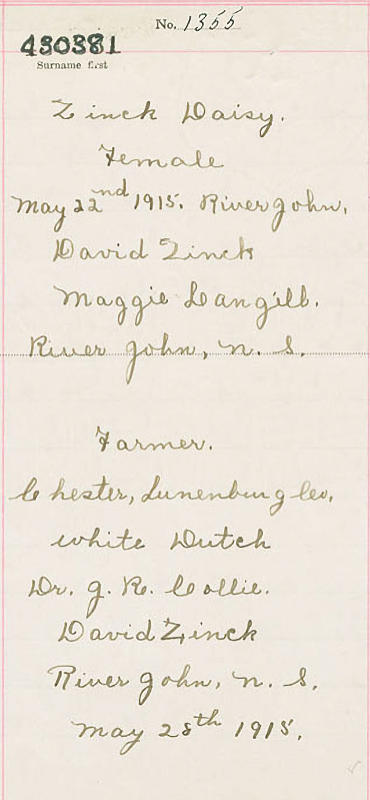 No. 1355
430381
Surname first
Zinck Daisy.
Female
May 22nd 1915. River John,
David Zinck
Maggie Langill.
River John, N. S.
Farmer.
Chester, Lunenburg Co.
white Dutch
Dr. G. R. Collie.
David Zinck
River John, N. S.
May 28th 1915.